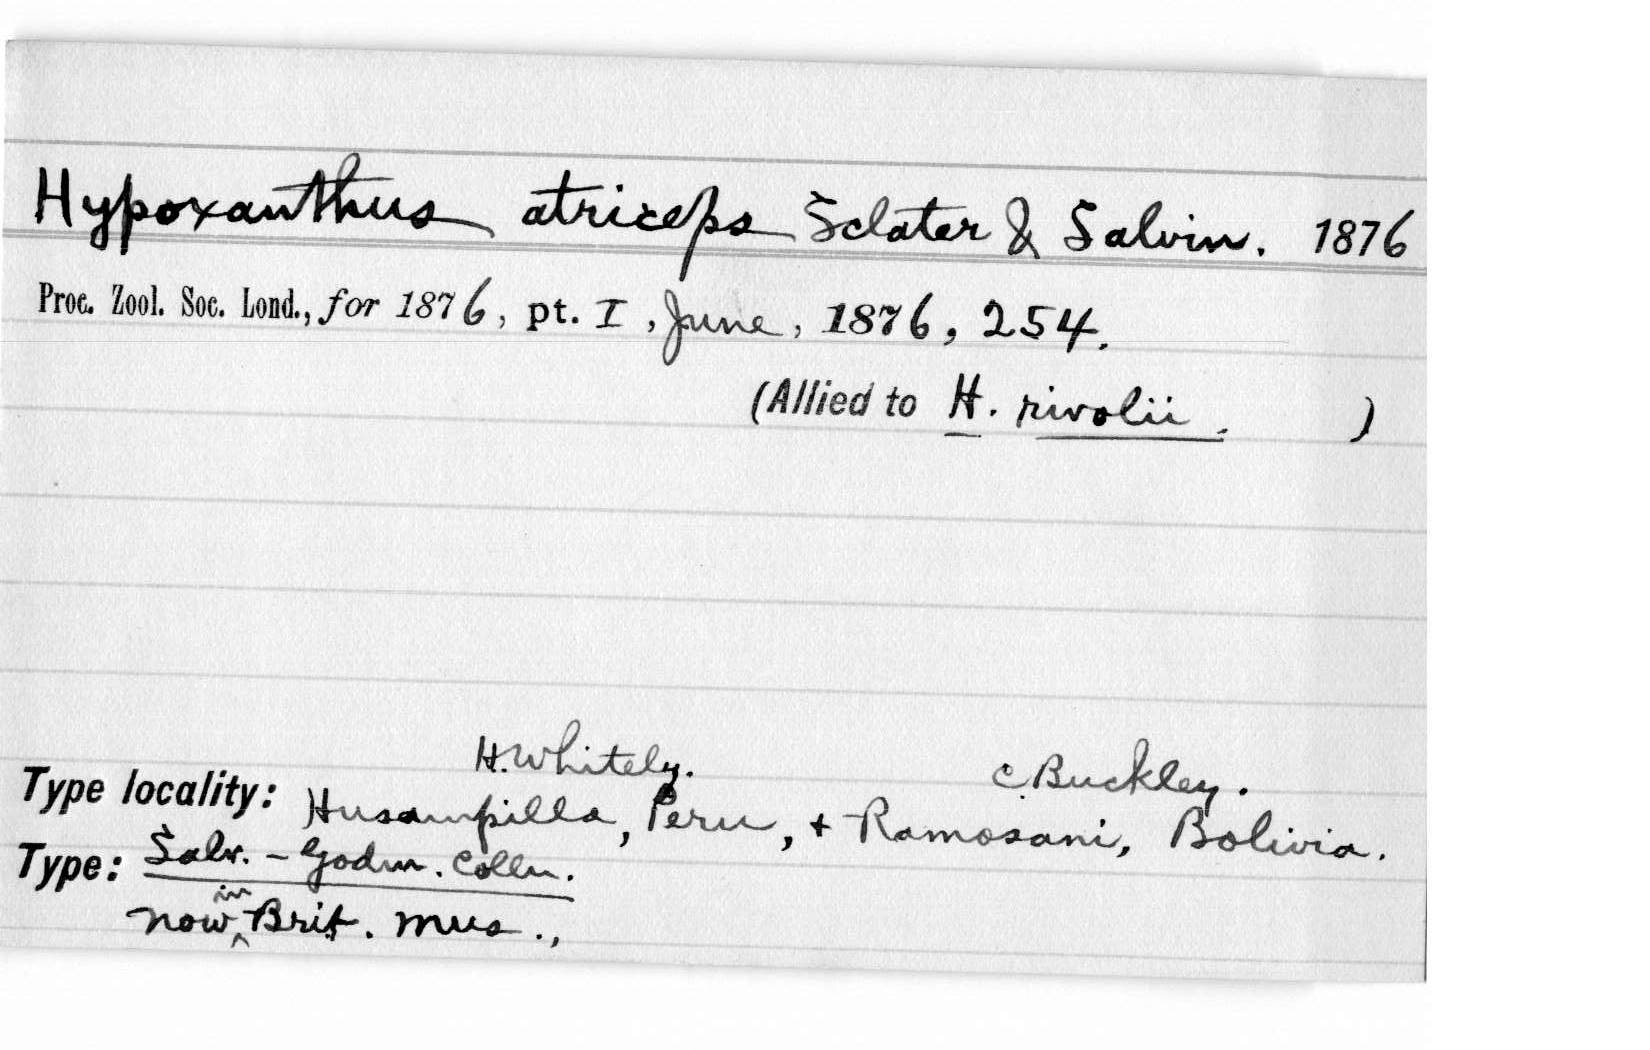 Hypoxanthus atriceps Sclater & Salvin. 1876
Proc. Zool. Soc. Lond., for 1876, pt. I, June, 1876, 254.
(Allied to H. rivolii. )
H. Whitely. C. Buckley.
Type locality: Husampilla, Peru, + Ramosani, Bolivia.
Type: Salv. - Godm. Colln.
now in Brit. Mus.,